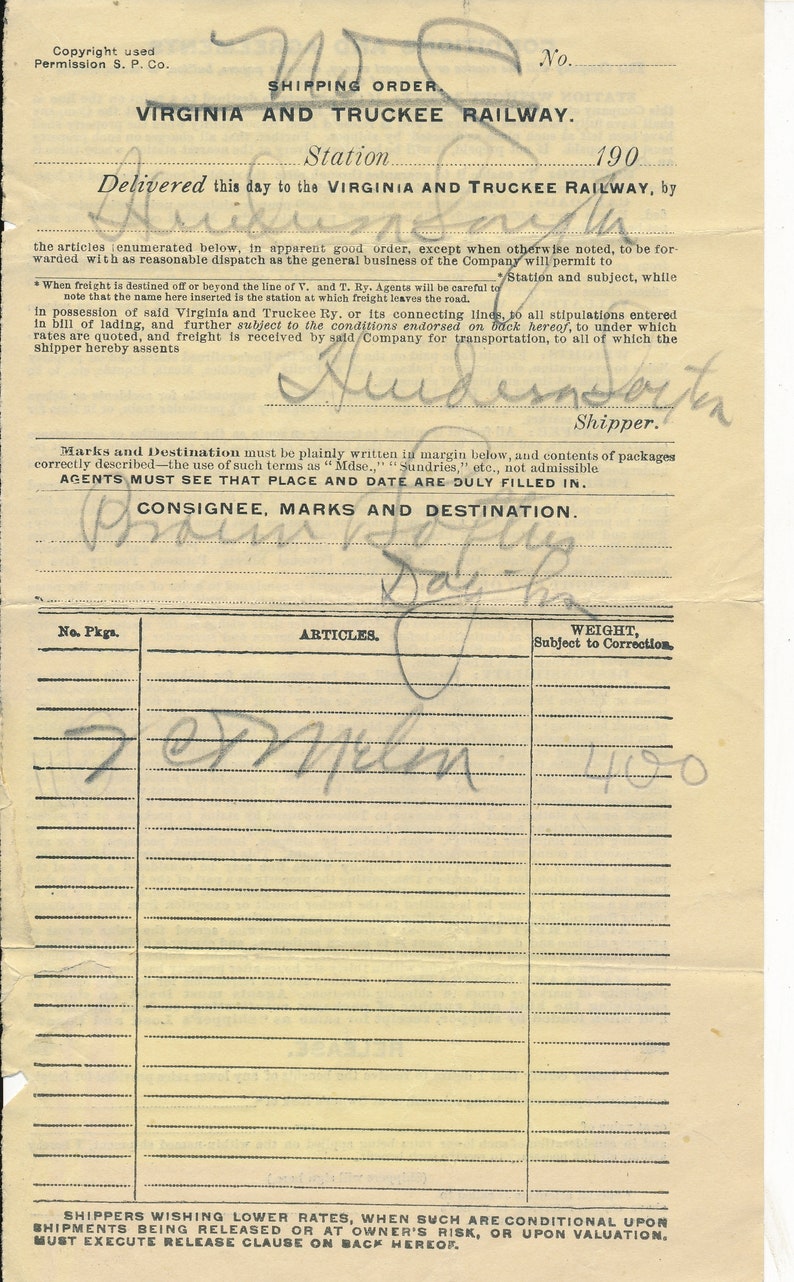 Copyright used
Permission S. P. Co.
No.
SHIPPING ORDER.
VIRGINIA AND TRUCKEE RAILWAY.
Station 190
Delivered this day to the VIRGINIA AND TRUCKEE RAILWAY, by
the articles enumerated below, in apparent good order, except when otherwise noted, to be for-
warded with as reasonable dispatch as the general business of the Company will permit to
* Station and subject, while
* When freight is destined off or beyond the line of V. and T. Ry. Agents will be careful to
note that the name here inserted is the station at which freight leaves the road.
in possession of said Virginia and Truckee Ry. or its connecting lines, to all stipulations entered
in bill of lading, and further subject to the conditions endorsed on back hereof, to under which
rates are quoted, and freight is received by said Company for transportation, to all of which the
shipper hereby assents
Shipper.
Marks and Destination must be plainly written in margin below, and contents of packages
correctly described—the use of such terms as "Mdse.," "Sundries," etc., not admissible
AGENTS MUST SEE THAT PLACE AND DATE ARE DULY FILLED IN.
CONSIGNEE, MARKS AND DESTINATION.
Dayton
No. Pkgs. ARTICLES. WEIGHT,
Subject to Correction.
7 Melon 400
SHIPPERS WISHING LOWER RATES, WHEN SUCH ARE CONDITIONAL UPON
SHIPMENTS BEING RELEASED OR AT OWNER'S RISK, OR UPON VALUATION.
MUST EXECUTE RELEASE CLAUSE ON BACK HEREOF.